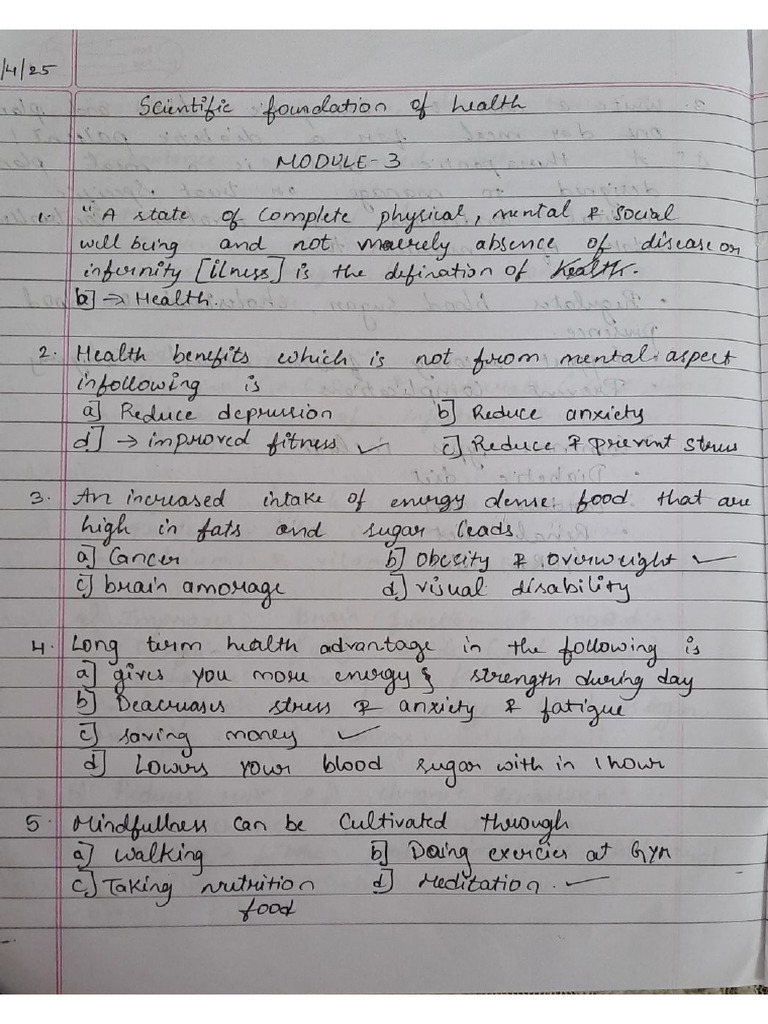 /4/25
Scientific foundation of health
MODULE-3
1. "A state of complete physical, mental & social
well being and not maerely absence of disease or
infirnity [ilness] is the defination of Health.
b] → Health.
2. Health benefits which is not from mental aspect
infollowing is
a] Reduce depression b] Reduce anxiety
d] → improved fitness ✓ c] Reduce & prevent stress
3. An increased intake of energy dense food that are
high in fats and sugar leads
a] Cancer b] Obesity & overweight ✓
c] brain amorage d] visual disability
4. Long term health advantage in the following is
a] gives you more energy & strength during day
b] Deacreases stress & anxiety & fatigue
c] saving money ✓
d] Lowers your blood sugar with in 1 hour
5. Mindfullness can be Cultivated through
a] walking b] Doing exercies at Gym
c] Taking nutrition d] Meditation. ✓
food